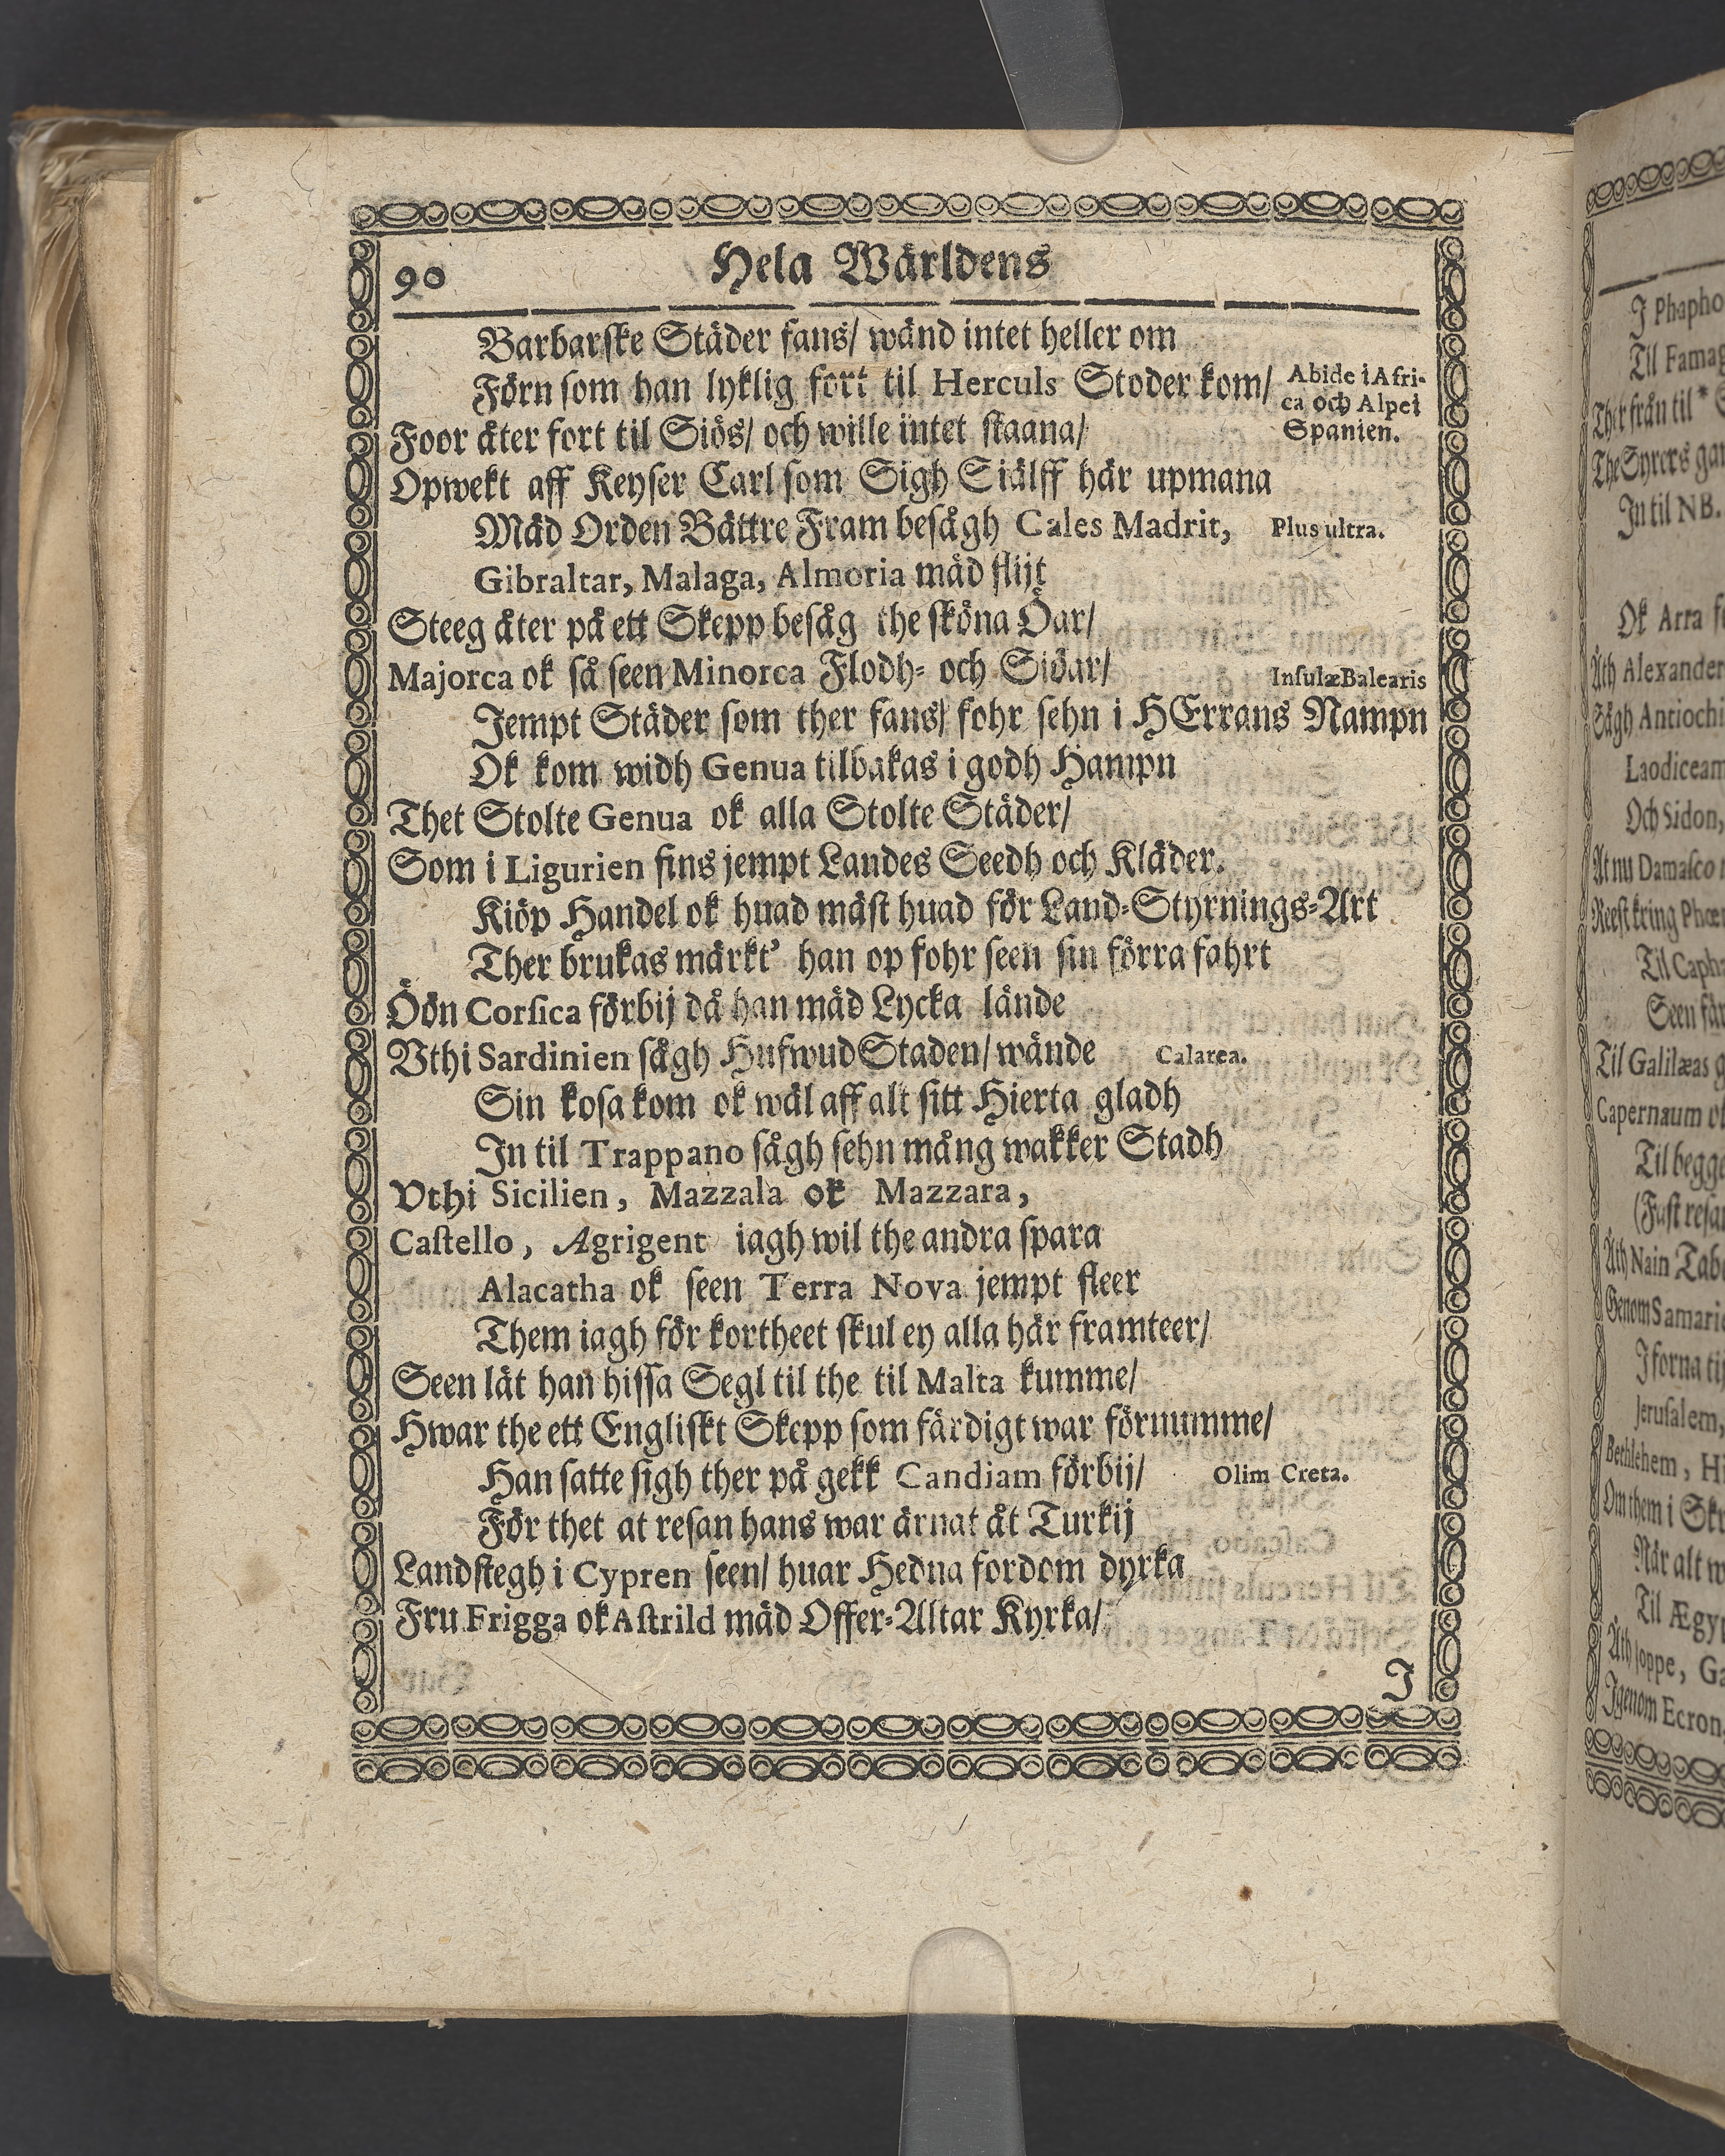 90 Hela Wärldens
Barbarſke Städer fans/ wänd intet heller om
Förn ſom han lyklig fort til Herculs Stoder kom/
Abide i Afri-
ca och Alpei
Spanien.
Foor åter fort til Siös/ och wille intet ſtaana/
Opwekt aff Keyſer Carl ſom Sigh Siälff här upmana
Mäd Orden Bättre Fram beſågh Cales Madrit, Plus ultra.
Gibraltar, Malaga, Almoria mäd flijt
Steeg åter på ett Skepp beſåg the ſköna Öar/
Majorca ok ſå ſeen Minorca Flodh- och Siöar/ Inſulæ Balearis
Jempt Städer ſom ther fans/ fohr ſehn i HErrans Nampn
Ok kom widh Genua tilbakas i godh Hampn
Thet Stolte Genua ok alla Stolte Städer/
Som i Ligurien fins jempt Landes Seedh och Kläder.
Kiöp Handel ok huad mäſt huad för Land-Styrnings-Art
Ther brukas märkt' han op fohr ſeen ſin förra fahrt
Öön Corſica förbij då han mäd Lycka lände
Vthi Sardinien ſågh Hufwud Staden/ wände Calarea.
Sin koſa kom ok wäl aff alt ſitt Hierta gladh
In til Trappano ſågh ſehn mång wakker Stadh
Vthi Sicilien, Mazzala ok Mazzara,
Caſtello, Agrigent iagh wil the andra ſpara
Alacatha ok ſeen Terra Nova jempt fleer
Them iagh för kortheet ſkul ey alla här framteer/
Seen lät han hiſſa Segl til the til Malta kumme/
Hwar the ett Engliſkt Skepp ſom färdigt war förnumme/
Han ſatte ſigh ther på gekk Candiam förbij/ Olim Creta.
För thet at reſan hans war ärnat åt Turkij
Landſtegh i Cypren ſeen/ huar Hedna fordom dyrka
Fru Frigga ok Aſtrild mäd Offer-Altar Kyrka/
J
J Phapho
Til Famag
Ther från til *
The Syrers
In til NB.
Ok Arra
Äth Alexander
Sågh Antiochi
Laodiceam
Och Sidon,
At nu Damaſco
Reeſt kring
Til Caph
Seen
Til Galilæas
Capernaum
Til begge
Äth Nain
Genom Samari
I forna
Jeruſalem,
Bethlehem,
Om them i
När alt
Til Ægyp
Äth Joppe,
Igenom Ecron